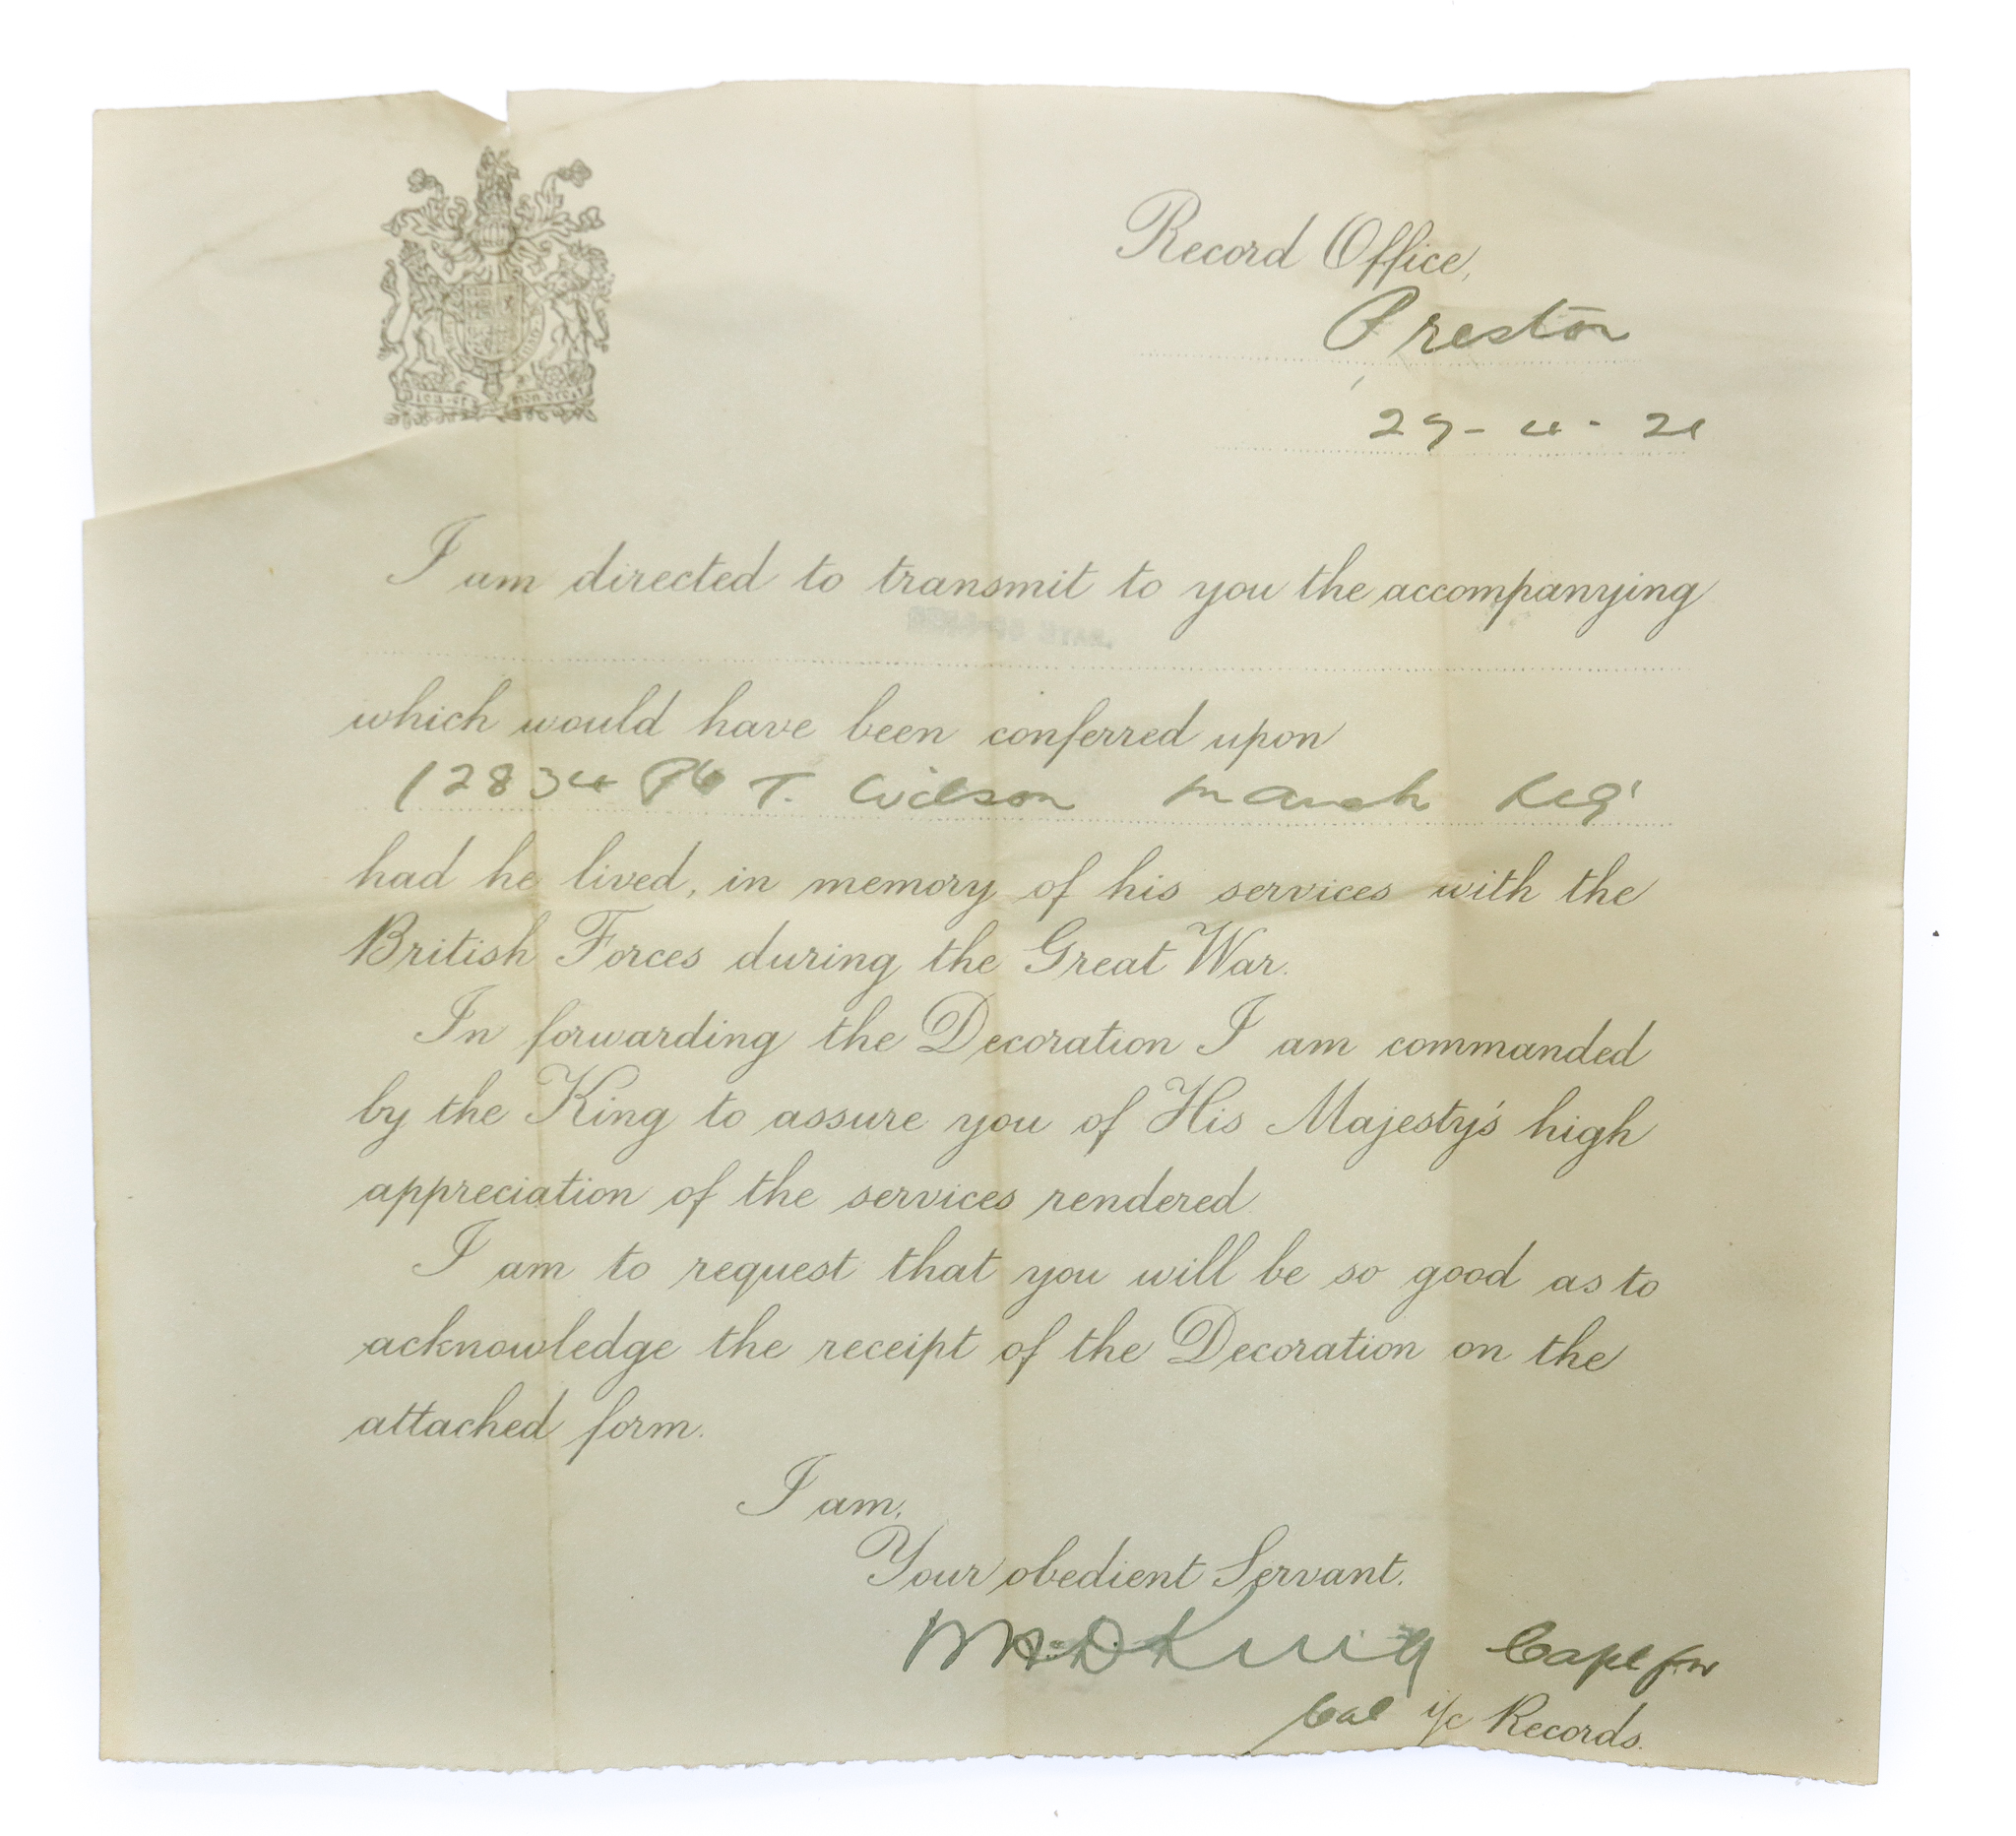 Dieu et mon droit
Record Office,
Preston
29-4-21
I am directed to transmit to you the accompanying
STAR.
which would have been conferred upon
12834 Pte T. Wilson Manch Reg'
had he lived, in memory of his services with the
British Forces during the Great War.
In forwarding the Decoration I am commanded
by the King to assure you of His Majesty's high
appreciation of the services rendered.
I am to request that you will be so good as to
acknowledge the receipt of the Decoration on the
attached form.
I am,
Your obedient Servant.
King Capt for
Col i/c Records.